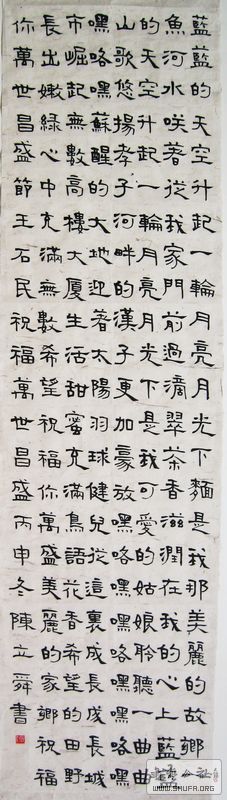 藍藍的天空升起一輪月亮月光下麵是我那美麗的故鄉
魚河水咲著從我家門前過滴翠茶香滋潤在我的心上藍藍
的天空升起一輪月亮月光下是我可愛的姑娘聆聽一曲曲
山歌悠揚孝子河畔的漢子更加豪放嘿咯嘿咯嘿咯嘿
嘿咯嘿蘇醒的大地迎著太陽羽球健兒從這裏成長成長城
市崛起無數高樓大厦生活甜蜜充滿鳥語花香希望的田野
長出嫩綠心中充滿無數希望祝福你萬盛美麗的家鄉祝福
你萬世昌盛節王石民祝福萬世昌盛丙申冬陳立舜書